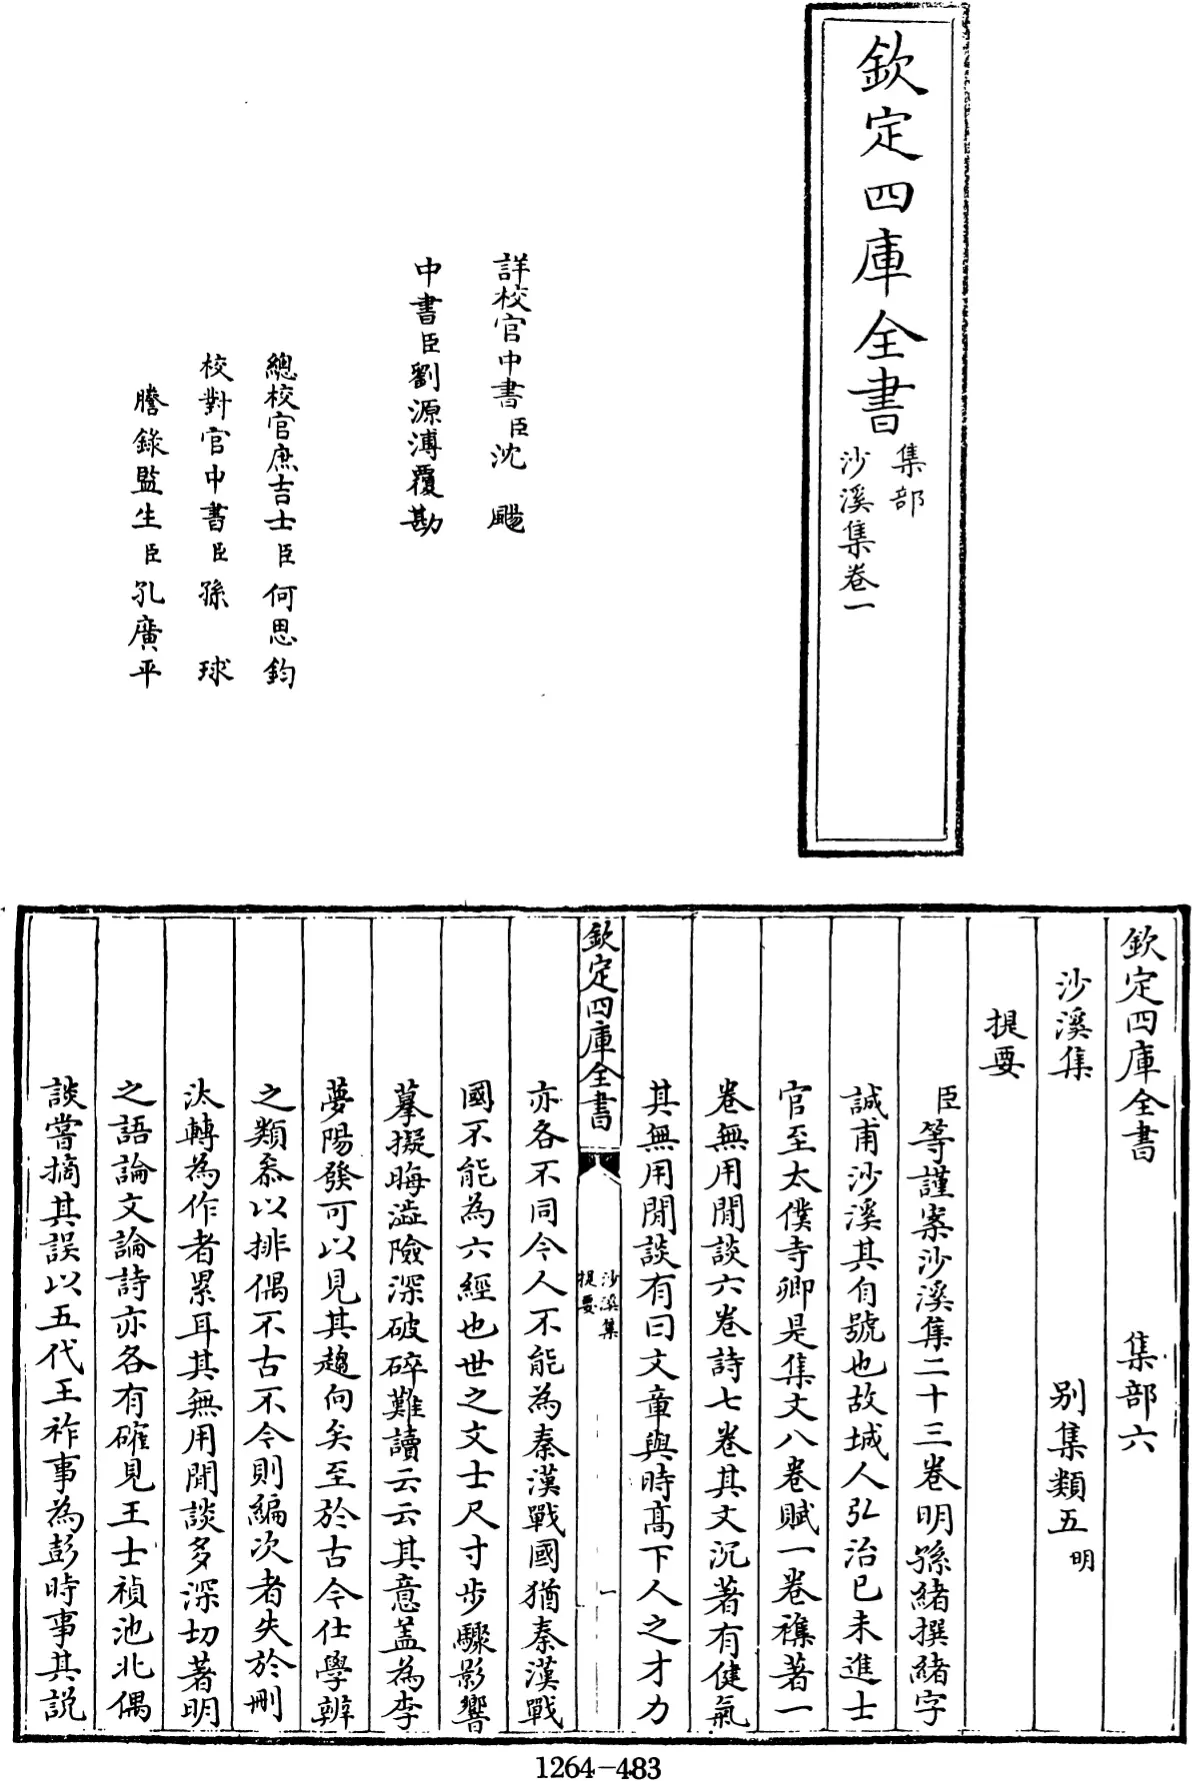 欽定四庫全書
集部
沙溪集卷一
詳校官中書臣沈颺
中書臣劉源溥覆勘
總校官庶吉士臣何思鈞
校對官中書臣孫球
謄錄監生臣孔廣平
欽定四庫全書　集部六
沙溪集　别集類五明
提要
臣等謹案沙溪集二十三卷明孫緒撰緒字
誠甫沙溪其自號也故城人弘治己未進士
官至太僕寺卿是集文八卷賦一卷襍著一
卷無用閒談六卷詩七卷其文沉著有健氣
其無用閒談有曰文章與時高下人之才力
欽定四庫全書
沙溪集
提要
一
亦各不同今人不能為秦漢戰國猶秦漢戰
國不能為六經也世之文士尺寸步驟影響
摹擬晦澁險深破碎難讀云云其意葢為李
夢陽發可以見其趨向矣至於古今仕學辨
之類叅以排偶不古不今則編次者失於刪
汰轉為作者累耳其無用閒談多深切著明
之語論文論詩亦各有確見王士禎池北偶
談嘗摘其誤以五代王祚事為彭時事其説
1264-483